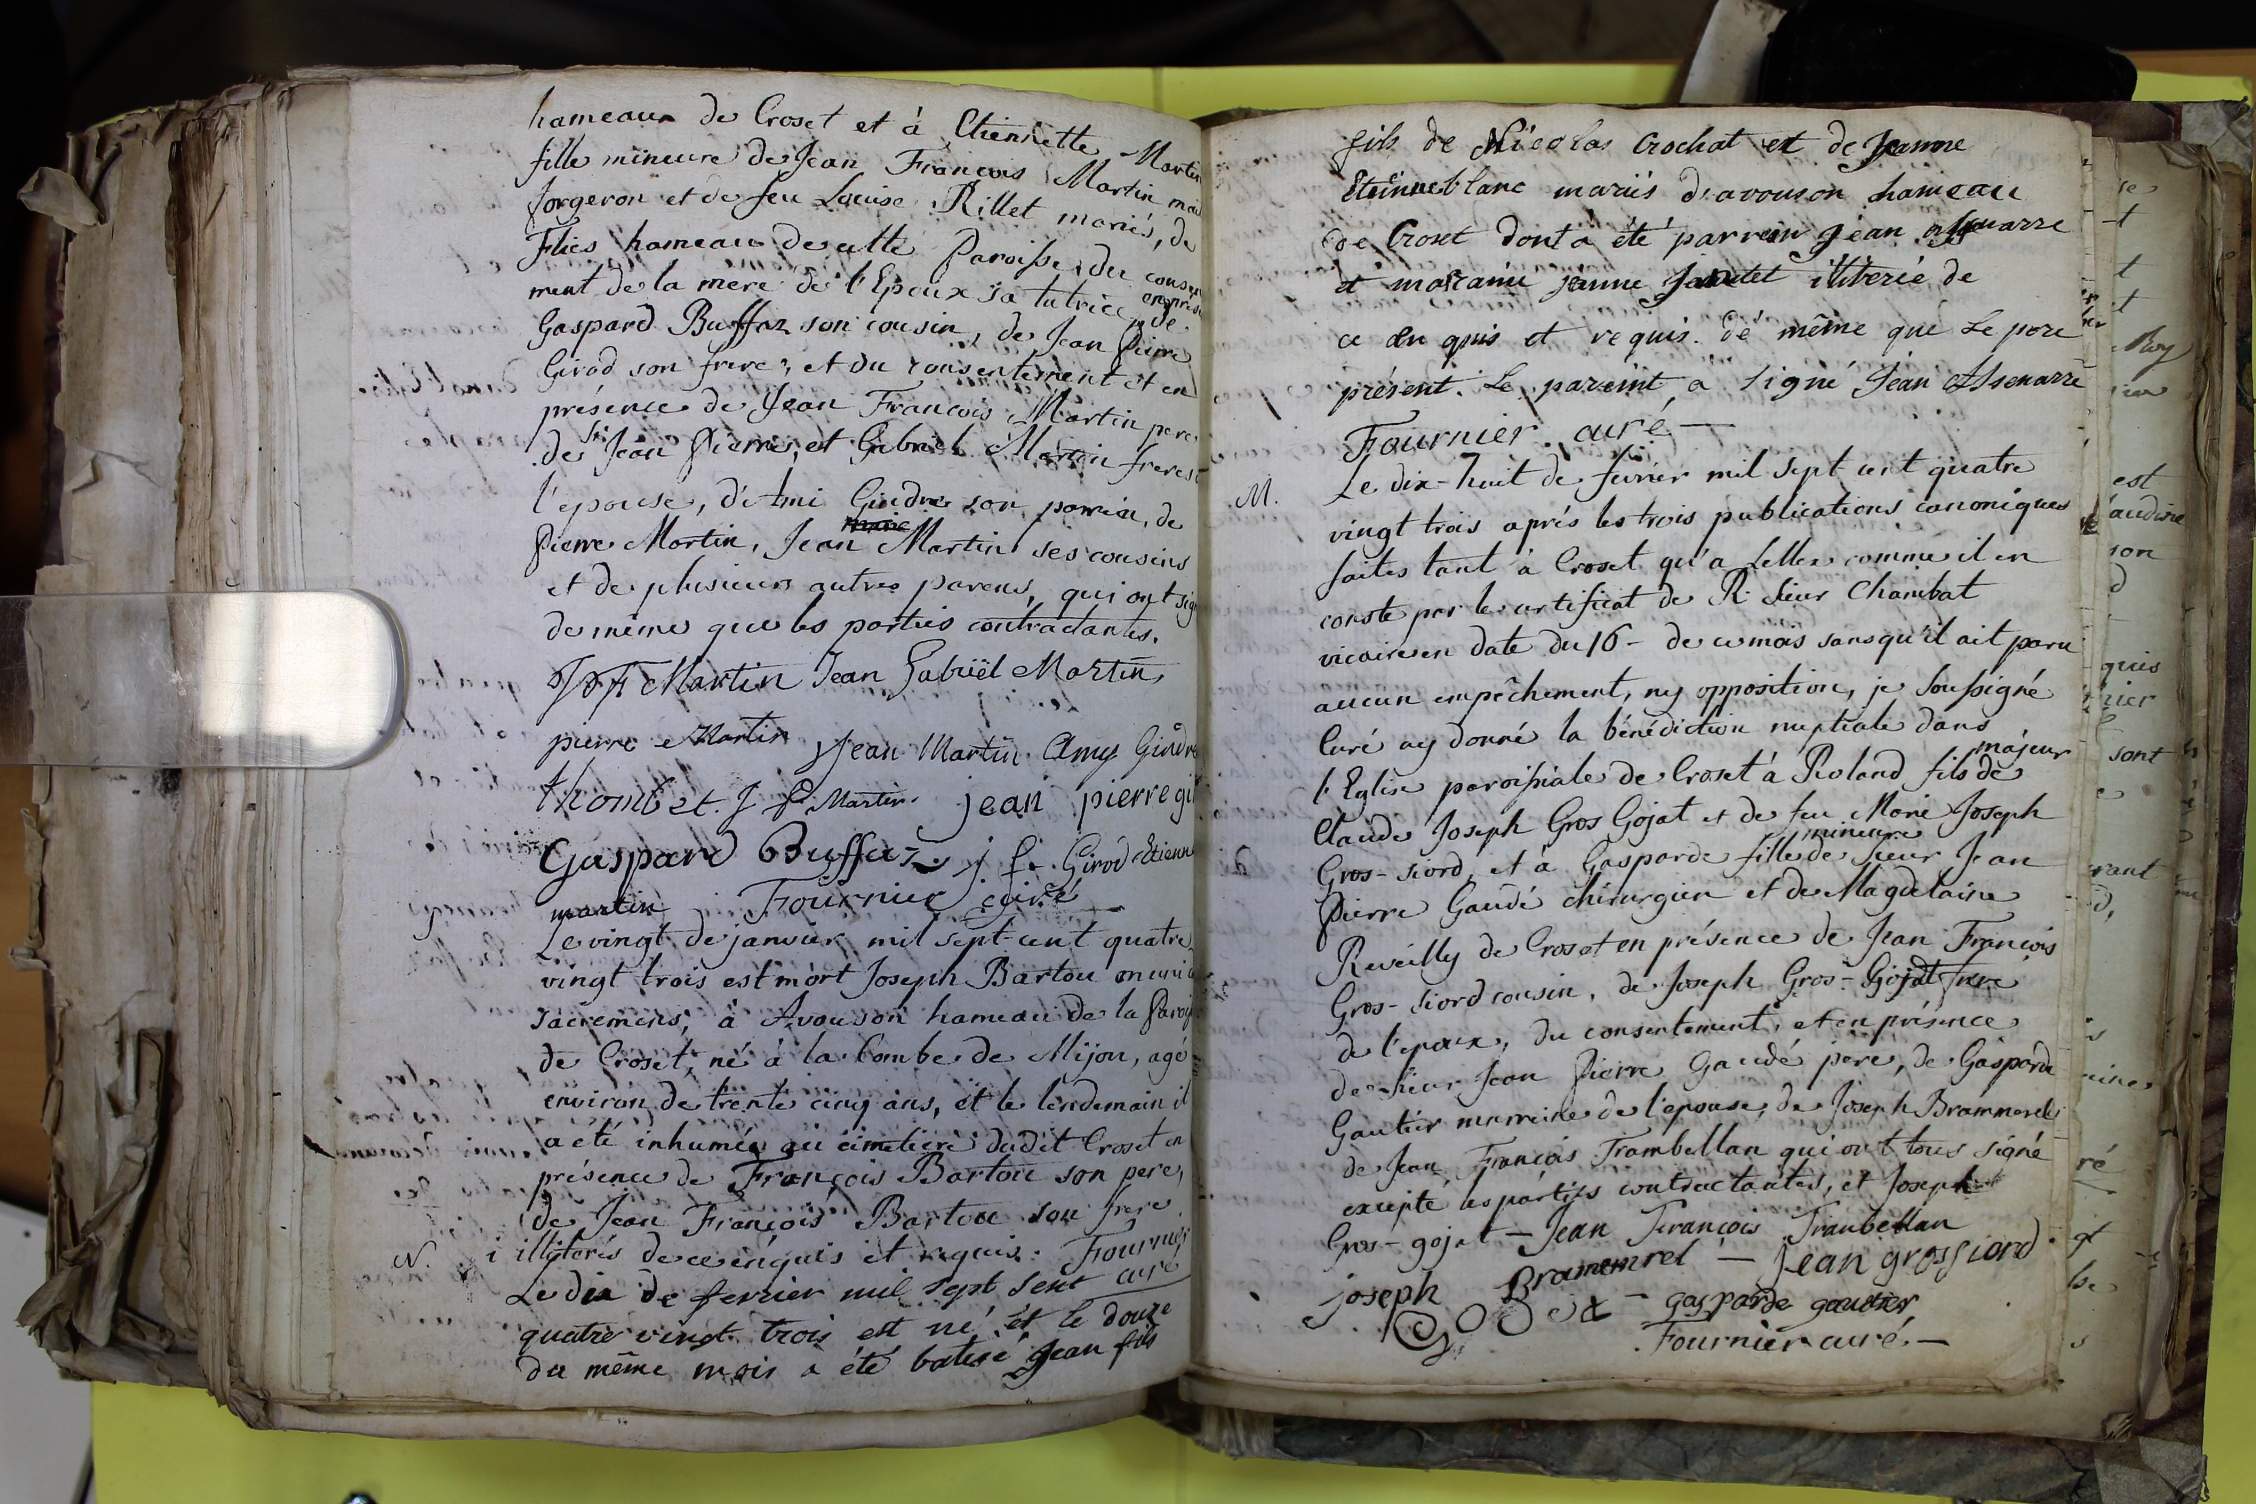 hameau de Croset et à Etiennette Martin
fille mineure de Jean François Martin
forgeron et de feu Louise Rillet mariés, de
Flies hameau de cette Paroisse, du consen
ment de la mere de l'Epoux sa tutrice, en présen
Gaspard Buffaz son cousin, de Jean Pierre
Girod son frere, et du consentement et en
présence de Jean François Martin pere
de Jean Pierre, et Gabriel Martin freres
l'epouse, d'Ami Gindre son parrain, de
Pierre Martin, Jean Martin ses cousins
et de plusieurs autres parens, qui ont sig
de même que les parties contractantes.
Martin Jean Gabriël Martin
pierre Martin Jean Martin Amy Gindre
thombet. J P Martin jean pierre gi
Gaspard Buffaz j f. Girod Etienn
martin Fournier curé
Le vingt de janvier mil sept-cent quatre
vingt trois est mort Joseph Bartou
sacremens, à Avouson hameau de la Paroi
de Croset, né à la Combe de Mijou, agé
environ de trente cinq ans, et le lendemain il
a eté inhumé au cimetiere dudit Croset en
présence de François Bartou son pere,
de Jean François Bartou son frere
illiterés de ce enquis et requis. Fournier
curé
N.
Le dix de fevrier mil sept sent
quatre vingt trois est né et le douze
du même mois a été batisé jean fils
fils de Nicolas Crochat et de Jeanne
blanc mariés d'avouson hameau
de Croset dont a été parrein jean
et maraine jeanne illiterée de
ce en quis et requis. de même que Le pere
présent. Le pareint a signé Jean
Fournier curé —
M.
Le dix-huit de fevrier mil sept cent quatre
vingt trois aprés les trois publications canoniques
faites tant à Croset qu'a Lellex comme il en
conste par le certificat de R. Sieur Chambat
vicaire en date du 16 - de ce mois sans qu'il ait paru
aucun empêchement, ny opposition, je soussigné
Curé ay donné la bénédiction nuptiale dans
l'Eglise paroissiale de Croset à Roland fils majeur de
Claude Joseph Gros Gojat et de feu Marie Joseph
Gros-siord, et à Gasparde fille mineure de sieur Jean
Pierre Gaudé chirurgien et de Magdelaine
Reveilly de Croset en présence de Jean François
Gros-siord cousin, de Joseph Gros-Gojat frere
de l'epoux, du consentement et en présence
de sieur Jean Pierre Gaudé pere, de Gasparde
Gautier marreine de l'epouse, de Joseph Brammerel
de Jean François Trambellan qui ont tous signé
excepté les parties contractantes, et Joseph
Gros-gojat — Jean François Tranbellan
joseph Bramemrel — jean grossiord
gasparde gautier
Fournier curé. —